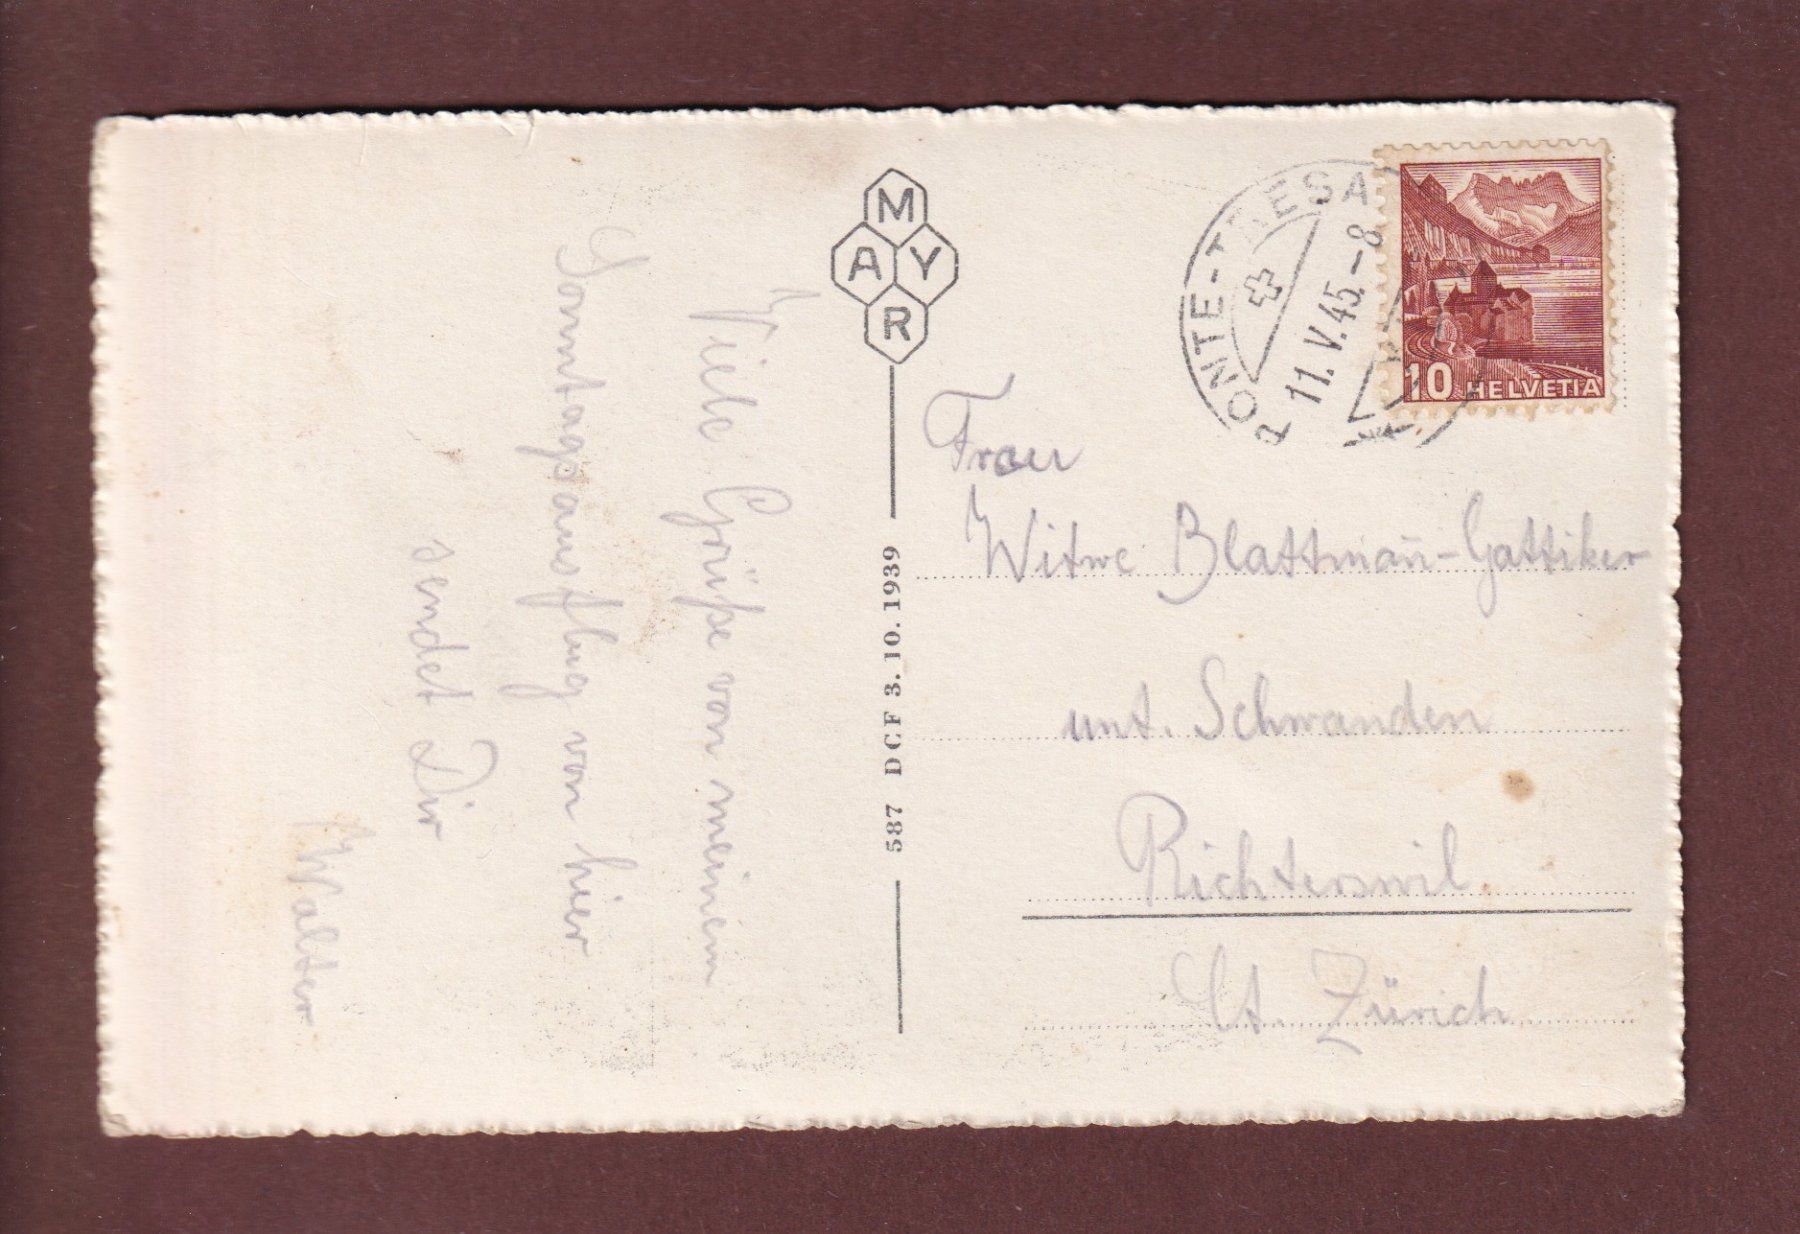 Viele Grüße von meinem
Sonntagsausflug von hier
sendet Dir
Walter
MAYR
587 DCF 3. 10. 1939
PONTE-TRESA
11. V. 45. – 8
10 HELVETIA
Frau
Witwe Blattman̄-Gattiker
unt. Schwanden
Richterswil.
Ct. Zürich